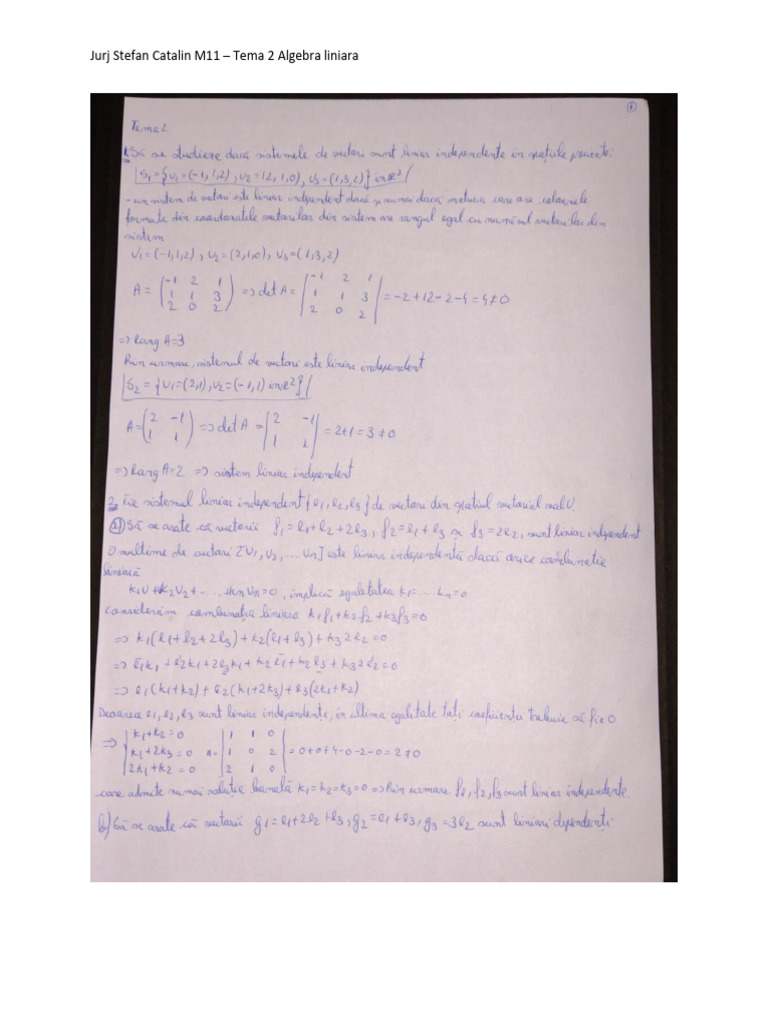 Jurj Stefan Catalin M11 – Tema 2 Algebra liniara
1
Tema 2
1. Să se studieze dacă sistemele de vectori sunt liniar independente în spațiile precizate:
S1 = { v1 = (-1, 1, 2) , v2 = (2, 1, 0) , v3 = (1, 3, 2) } în R³
- un sistem de vectori este liniar independent dacă și numai dacă matricea care are coloanele
formate din coordonatele vectorilor din sistem are rangul egal cu numărul vectorilor din
sistem
v1 = (-1, 1, 2) , v2 = (2, 1, 0) , v3 = (1, 3, 2)
A = ( -1 2 1 ; 1 1 3 ; 2 0 2 ) => det A = | -1 2 1 ; 1 1 3 ; 2 0 2 | = -2 + 12 - 2 - 4 = 4 ≠ 0
=> Rang A = 3
Prin urmare, sistemul de vectori este liniar independent
S2 = { v1 = (2, 1) , v2 = (-1, 1) în R² }
A = ( 2 -1 ; 1 1 ) => det A = | 2 -1 ; 1 2 | = 2 + 1 = 3 ≠ 0
=> Rang A = 2 => sistem liniar independent
2. Fie sistemul liniar independent { e1, e2, e3 } de vectori din spațiul vectorial real V.
a) Să se arate că vectorii f1 = e1 + e2 + 2e3 , f2 = e1 + e3 și f3 = 2e2, sunt liniar independent
O multime de vectori [v1, v2, ... vn] este liniar independentă dacă orice combinatie
liniară
k1v + k2v2 + ... kn vn = 0 , implică egalitatea k1 = ... kn = 0
Considerăm combinația liniara k1f1 + k2f2 + k3f3 = 0
=> k1(e1 + e2 + 2e3) + k2(e1 + e3) + k3 2e2 = 0
=> e1k1 + e2k1 + 2e3k1 + k2 e1 + k2e3 + k3 2e2 = 0
=> e1(k1 + k2) + e2(k1 + 2k3) + e3(2k1 + k2)
Deoarece e1, e2, e3 sunt liniar independenti, în ultima egalitate toți coeficienții trebuie să fie 0
=> { k1 + k2 = 0 ; k1 + 2k3 = 0 ; 2k1 + k2 = 0 = | 1 1 0 ; 1 0 2 ; 2 1 0 | = 0 + 0 + 4 - 0 - 2 - 0 = 2 ≠ 0
care admite numai soluția banală k1 = k2 = k3 = 0 => Prin urmare f1, f2, f3 sunt liniar independente.
b) Să se arate că vectorii g1 = e1 + 2e2 + e3, g2 = e1 + e3, g3 = 3e2 sunt liniari dependenți: